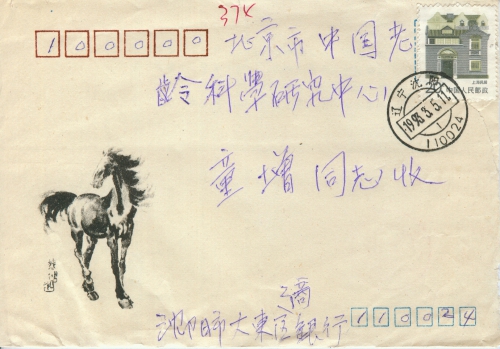 374
100000
北京市中国老
龄科學研究中心
童增同志收
沈阳市大東区銀行
110024
辽宁沈阳
1993.3.5.17
110024
上海民居
20
中国人民邮政